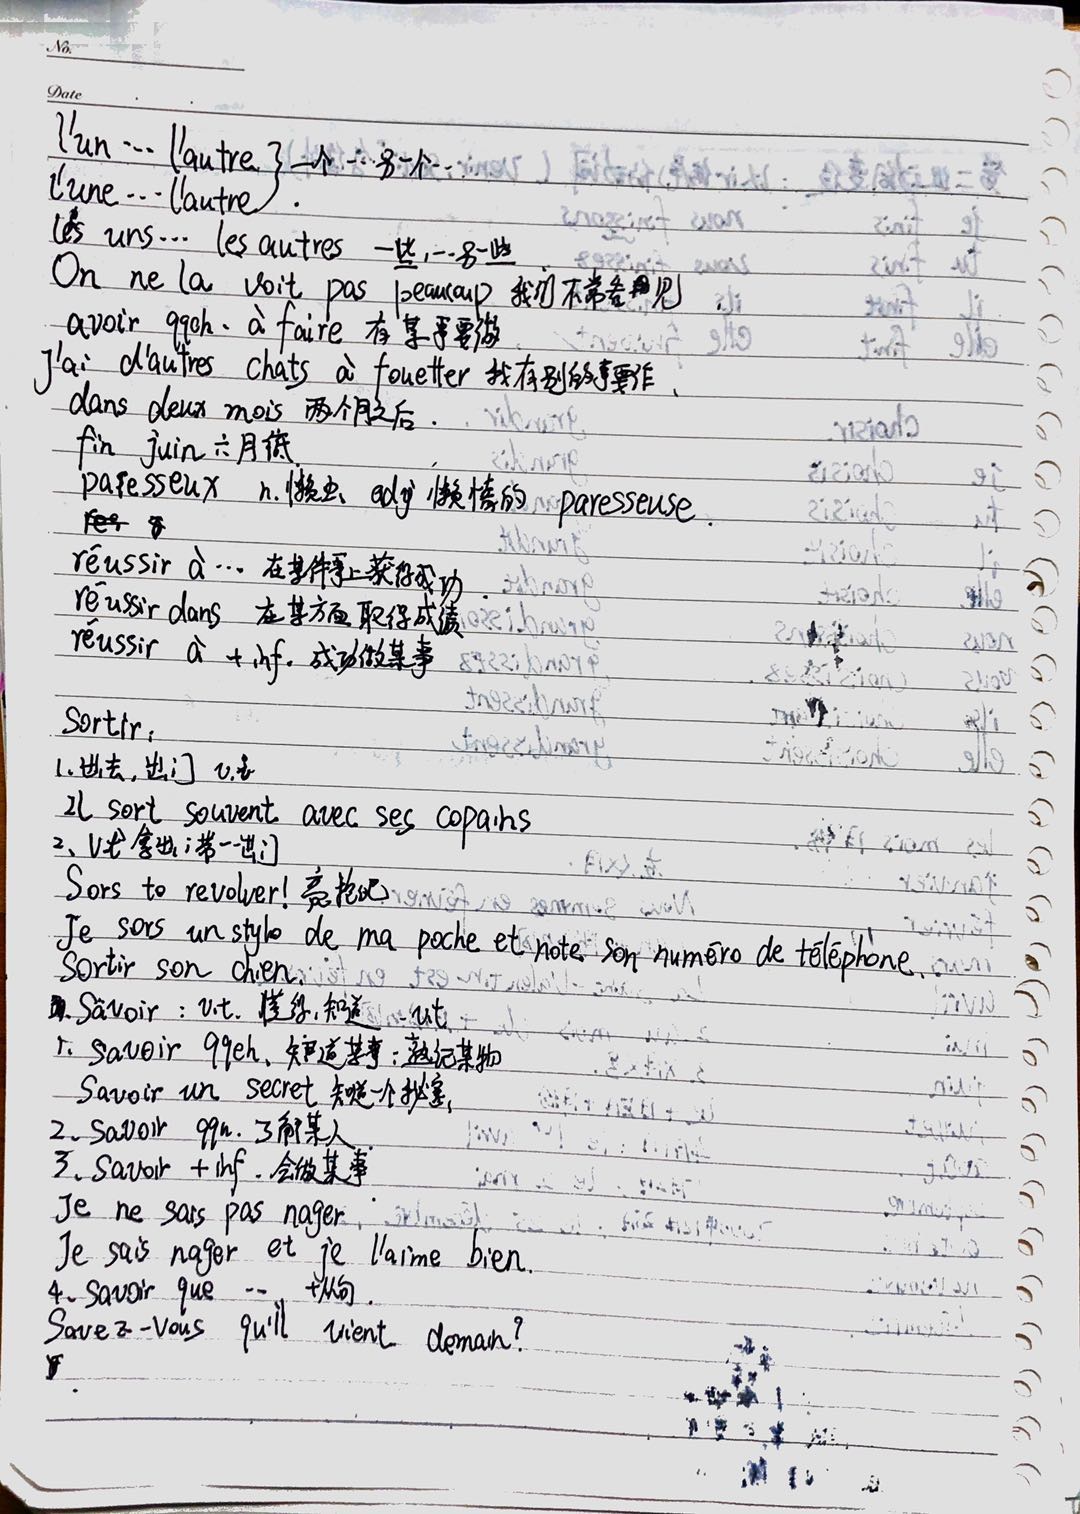 No.
Date
l'un … l'autre } 一个…另一个…
l'une … l'autre
les uns… les autres 一些,…另一些
On ne la voit pas beaucoup 我们不常看见
avoir qqch. à faire 有某事要做
J'ai d'autres chats à fouetter 我有别的事要作.
dans deux mois 两个月之后.
fin juin 六月底
paresseux n.懒虫、 adj 懒惰的 paresseuse.
réussir à … 在某件事上获得成功.
réussir dans 在某方面取得成绩
réussir à + inf. 成功做某事
Sortir:
1.出去,出门 v.i
Il sort souvent avec ses copains
2、v.t 拿出;带…出门
Sors to revolver! 亮抢吧
Je sors un stylo de ma poche et note son numéro de téléphone.
Sortir son chien.
Savoir : v.t. 懂得,知道 v.t
1. savoir qqch、知道某事;熟记某物
Savoir un secret 知道一个秘密,
2、savoir qqn. 了解某人
3、savoir + inf. 会做某事
Je ne sais pas nager
Je sais nager et je l'aime bien.
4、savoir que … +从句.
Savez-vous qu'il vient demain?